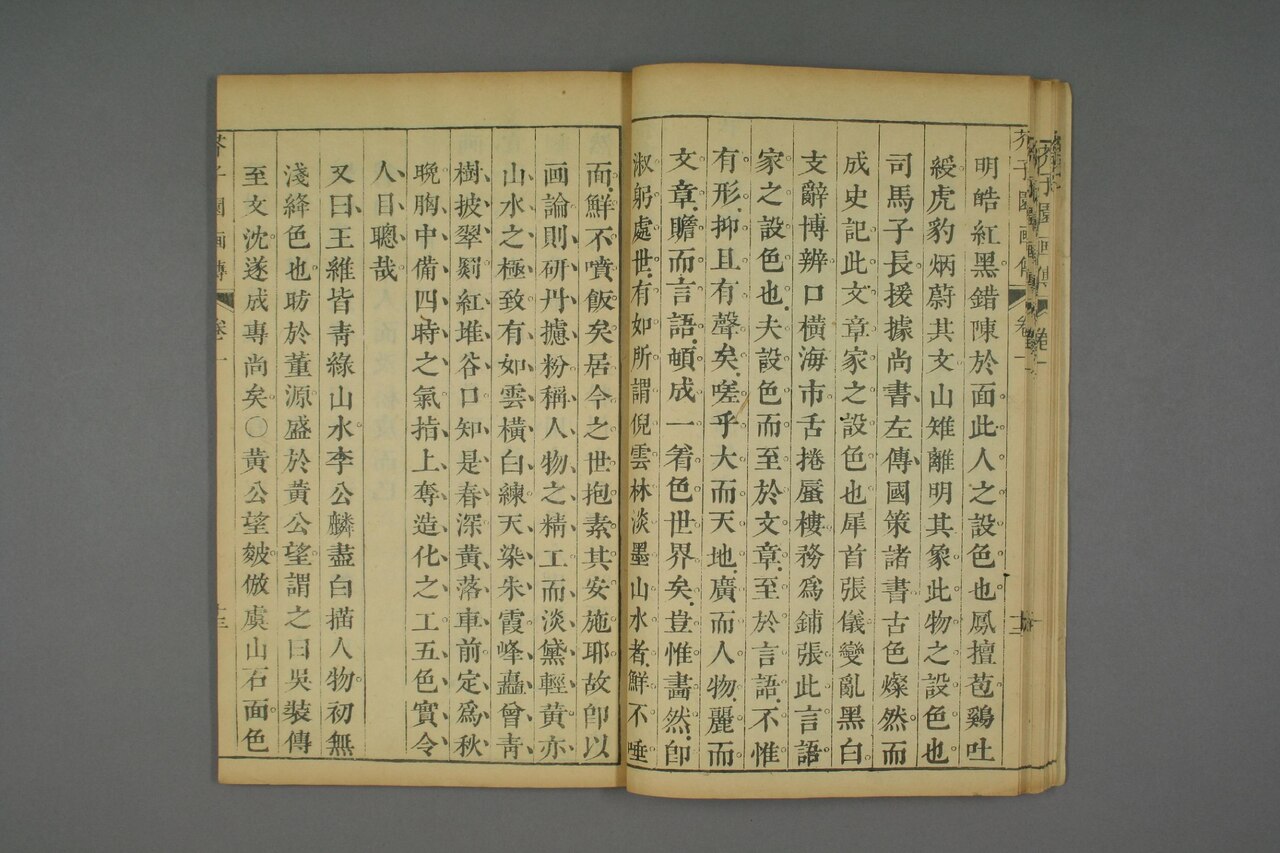 明皓紅黑錯陳於面此人之設色也鳳擅苞鷄吐
綬虎豹炳蔚其文山雉離明其象此物之設色也
司馬子長援據尚書左傳國策諸書古色燦然而
成史記此文章家之設色也犀首張儀變亂黑白
支辭博辨口橫海市舌捲蜃樓務爲鋪張此言語
家之設色也夫設色而至於文章至於言語不惟
有形抑且有聲矣嗟乎大而天地廣而人物麗而
文章贍而言語頓成一着色世界矣豈惟畵然卽
淑躬處世有如所謂倪雲林淡墨山水者鮮不唾
面鮮不噴飯矣居今之世抱素其安施耶故卽以
画論則研丹攄粉稱人物之精工而淡黛輕黃亦
山水之極致有如雲橫白練天染朱霞峰矗曾靑
樹披翠罽紅堆谷口知是春深黃落車前定爲秋
晩胸中備四時之氣指上奪造化之工五色實令
人目聰哉
又曰王維皆靑綠山水李公麟盡白描人物初無
淺絳色也昉於董源盛於黃公望謂之曰吳裝傳
至文沈遂成專尚矣〇黃公望皴倣虞山石面色
芥子園画傳 卷一
芥子園画傳 卷一 十三